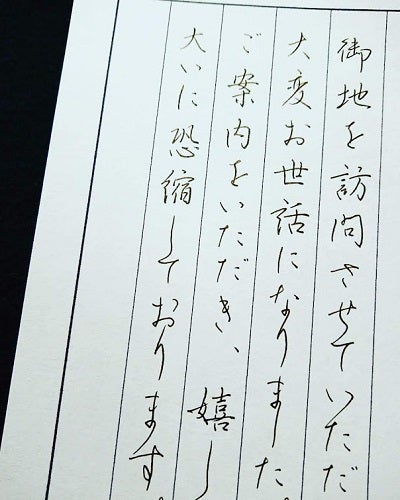 御地を訪問させていただ
大変お世話になりました。
ご案内をいただき、嬉し
大いに恐縮しております。